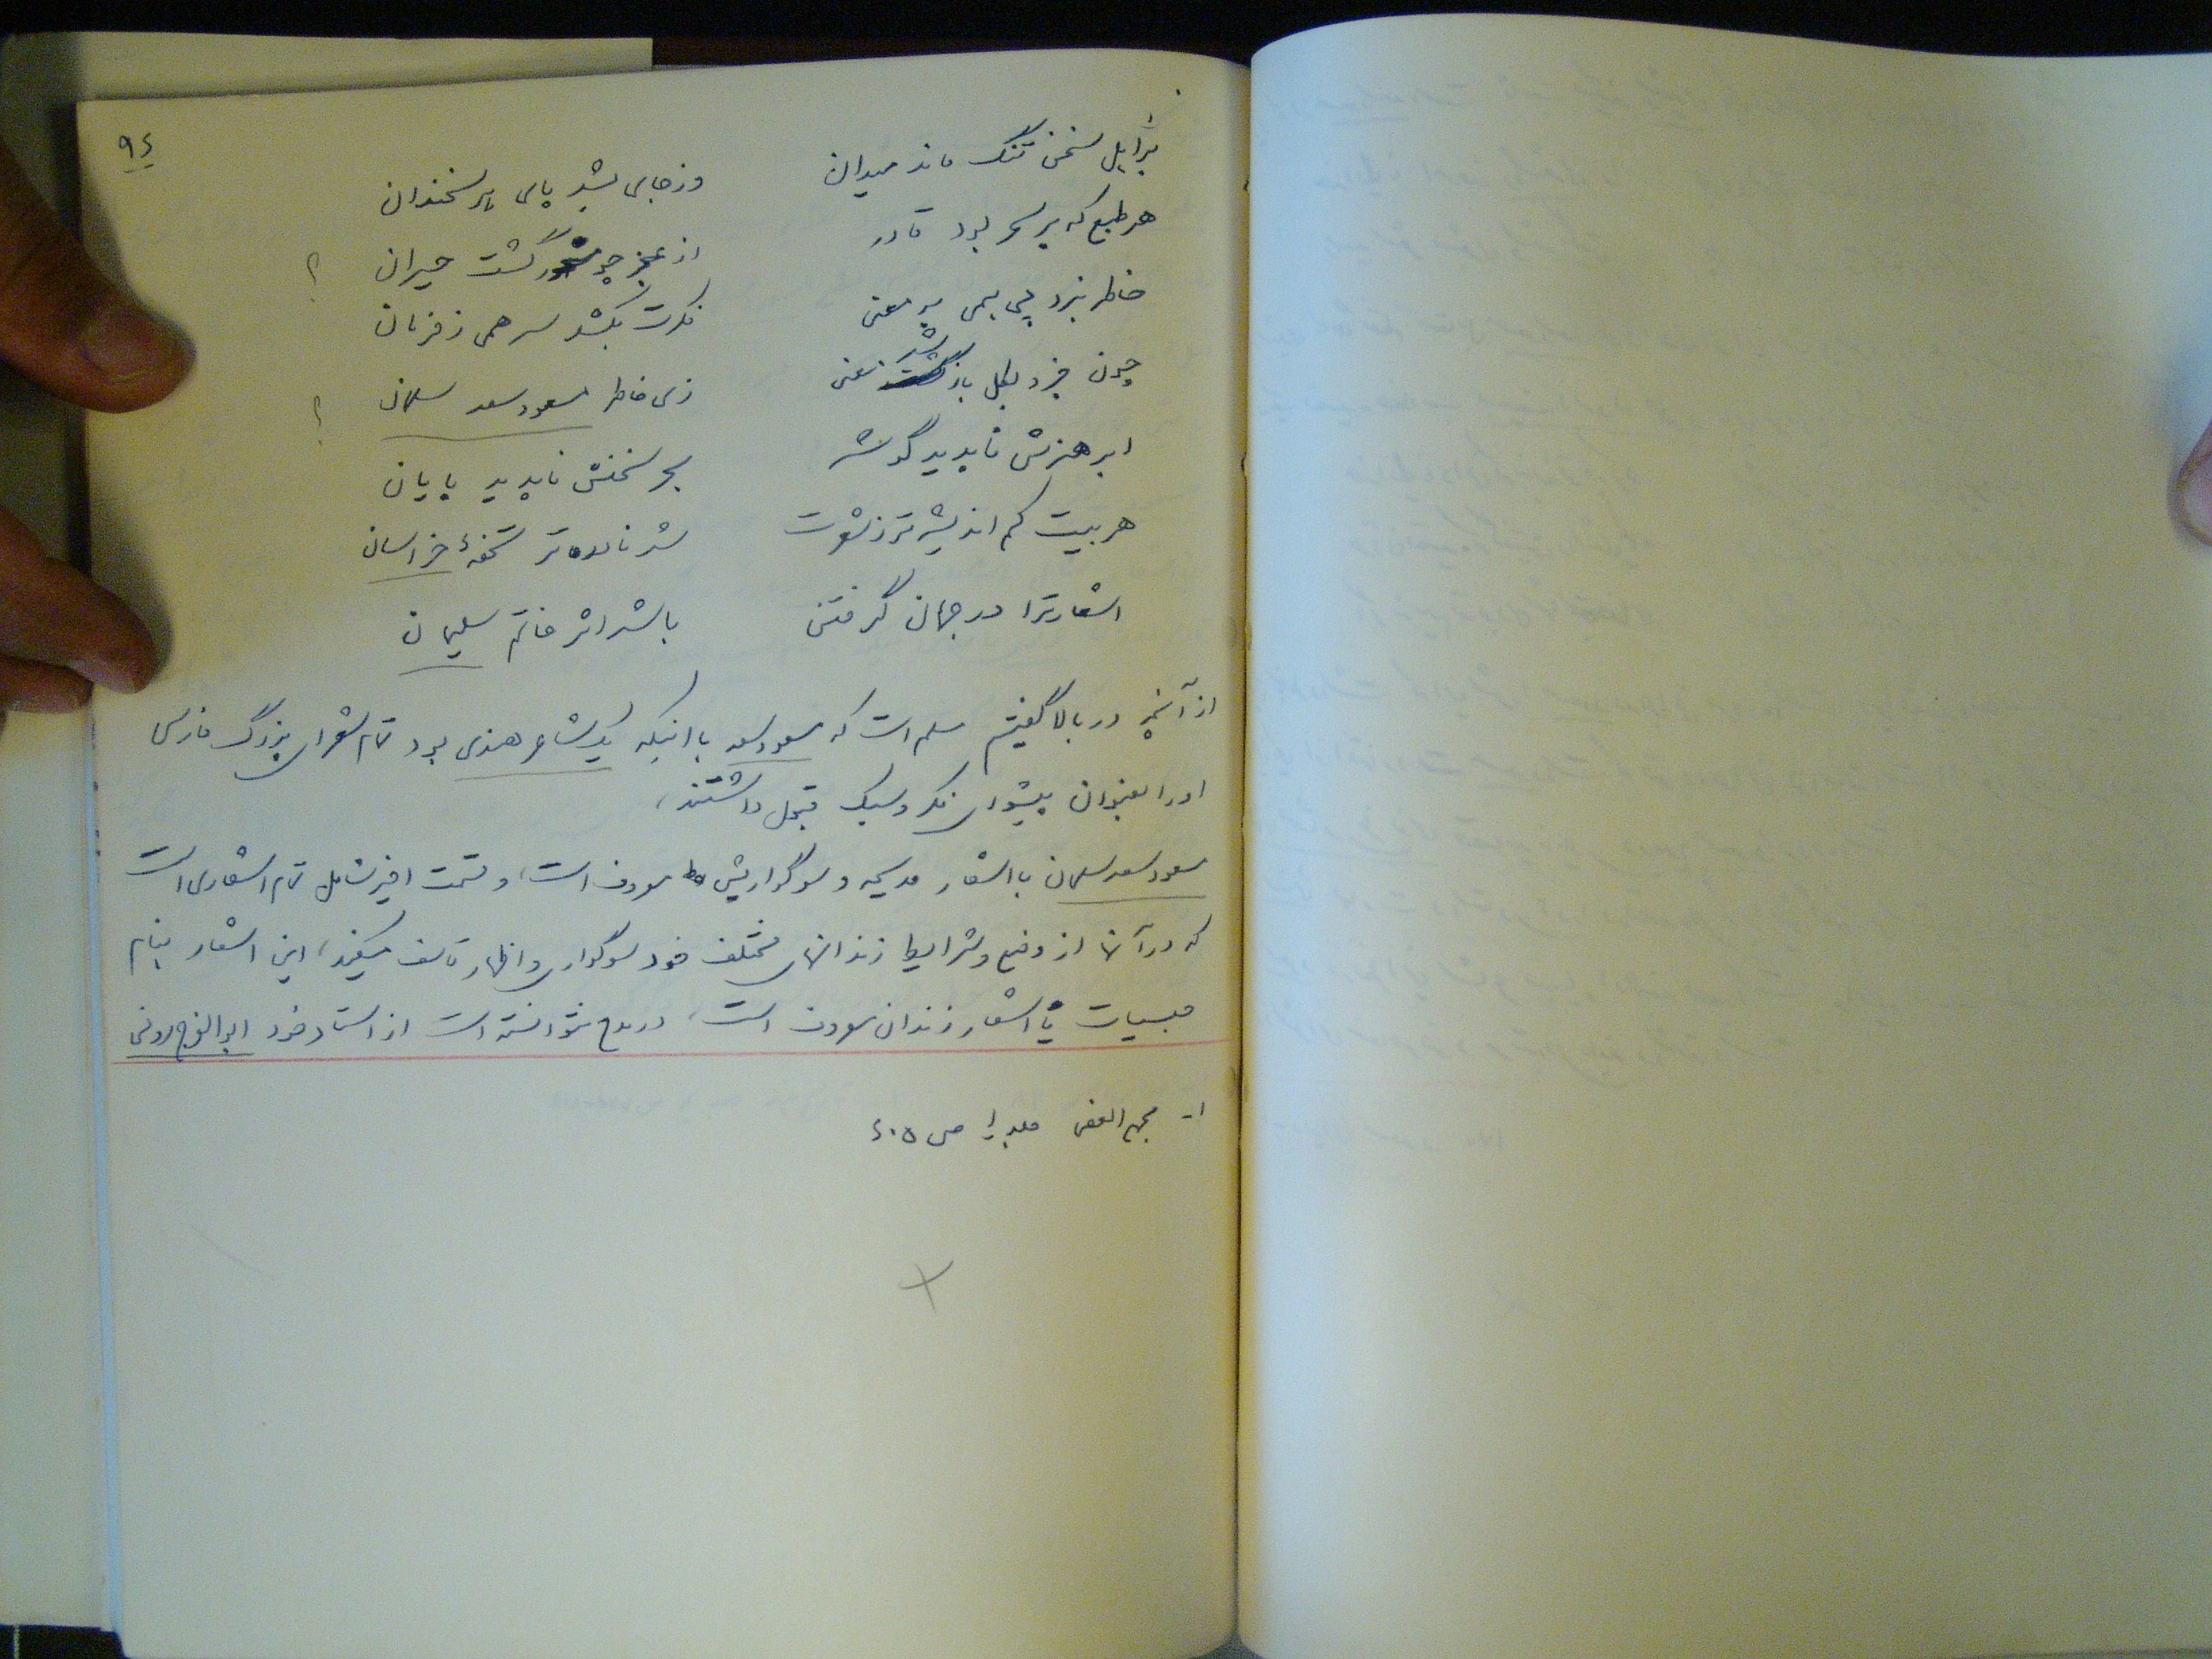 ۹٤
بر اهل سخن تنگ ماند میدان وز جای بشد پای هر سخندان
هر طبع که بر سحر بود قادر از عجز چو گشت حیران ؟
خاطر نبرد پی همی بر معنی فکرت بکشد سر همی ز فرمان
چون خرد بکل باز شد ز معنی زی خاطر مسعود سعد سلمان ؟
ابر هنرش ناپدید گوشه بحر سخنش ناپدید پایان
هر بیت کم اندیشه تر ز شعرت شد نادره تر تحفهٔ خراسان
اشعار ترا در جهان گرفتن باشد اثر خاتم سلیمان
از آنچه در بالا گفتیم مسلم است که مسعود سعد با اینکه یک شاعر هندی بود تمام شعرای بزرگ فارسی
او را بعنوان پیشوای فکر و سبک قبول داشتند،
مسعود سعد سلمان با اشعار مدیحه و سوگواریش معروف است، و قسمت اخیر شامل تمام اشعاری است
که در آنها از وضع و شرایط زندانهای مختلف خود سوگواری و اظهار تاسف میکند، این اشعار بنام
حبسیات یا اشعار زندان معروف است، در مدح نتوانسته است از استاد خود ابوالفرج رونی
۱- مجمع الفصحا جلد ۱ ص ٤۰۵